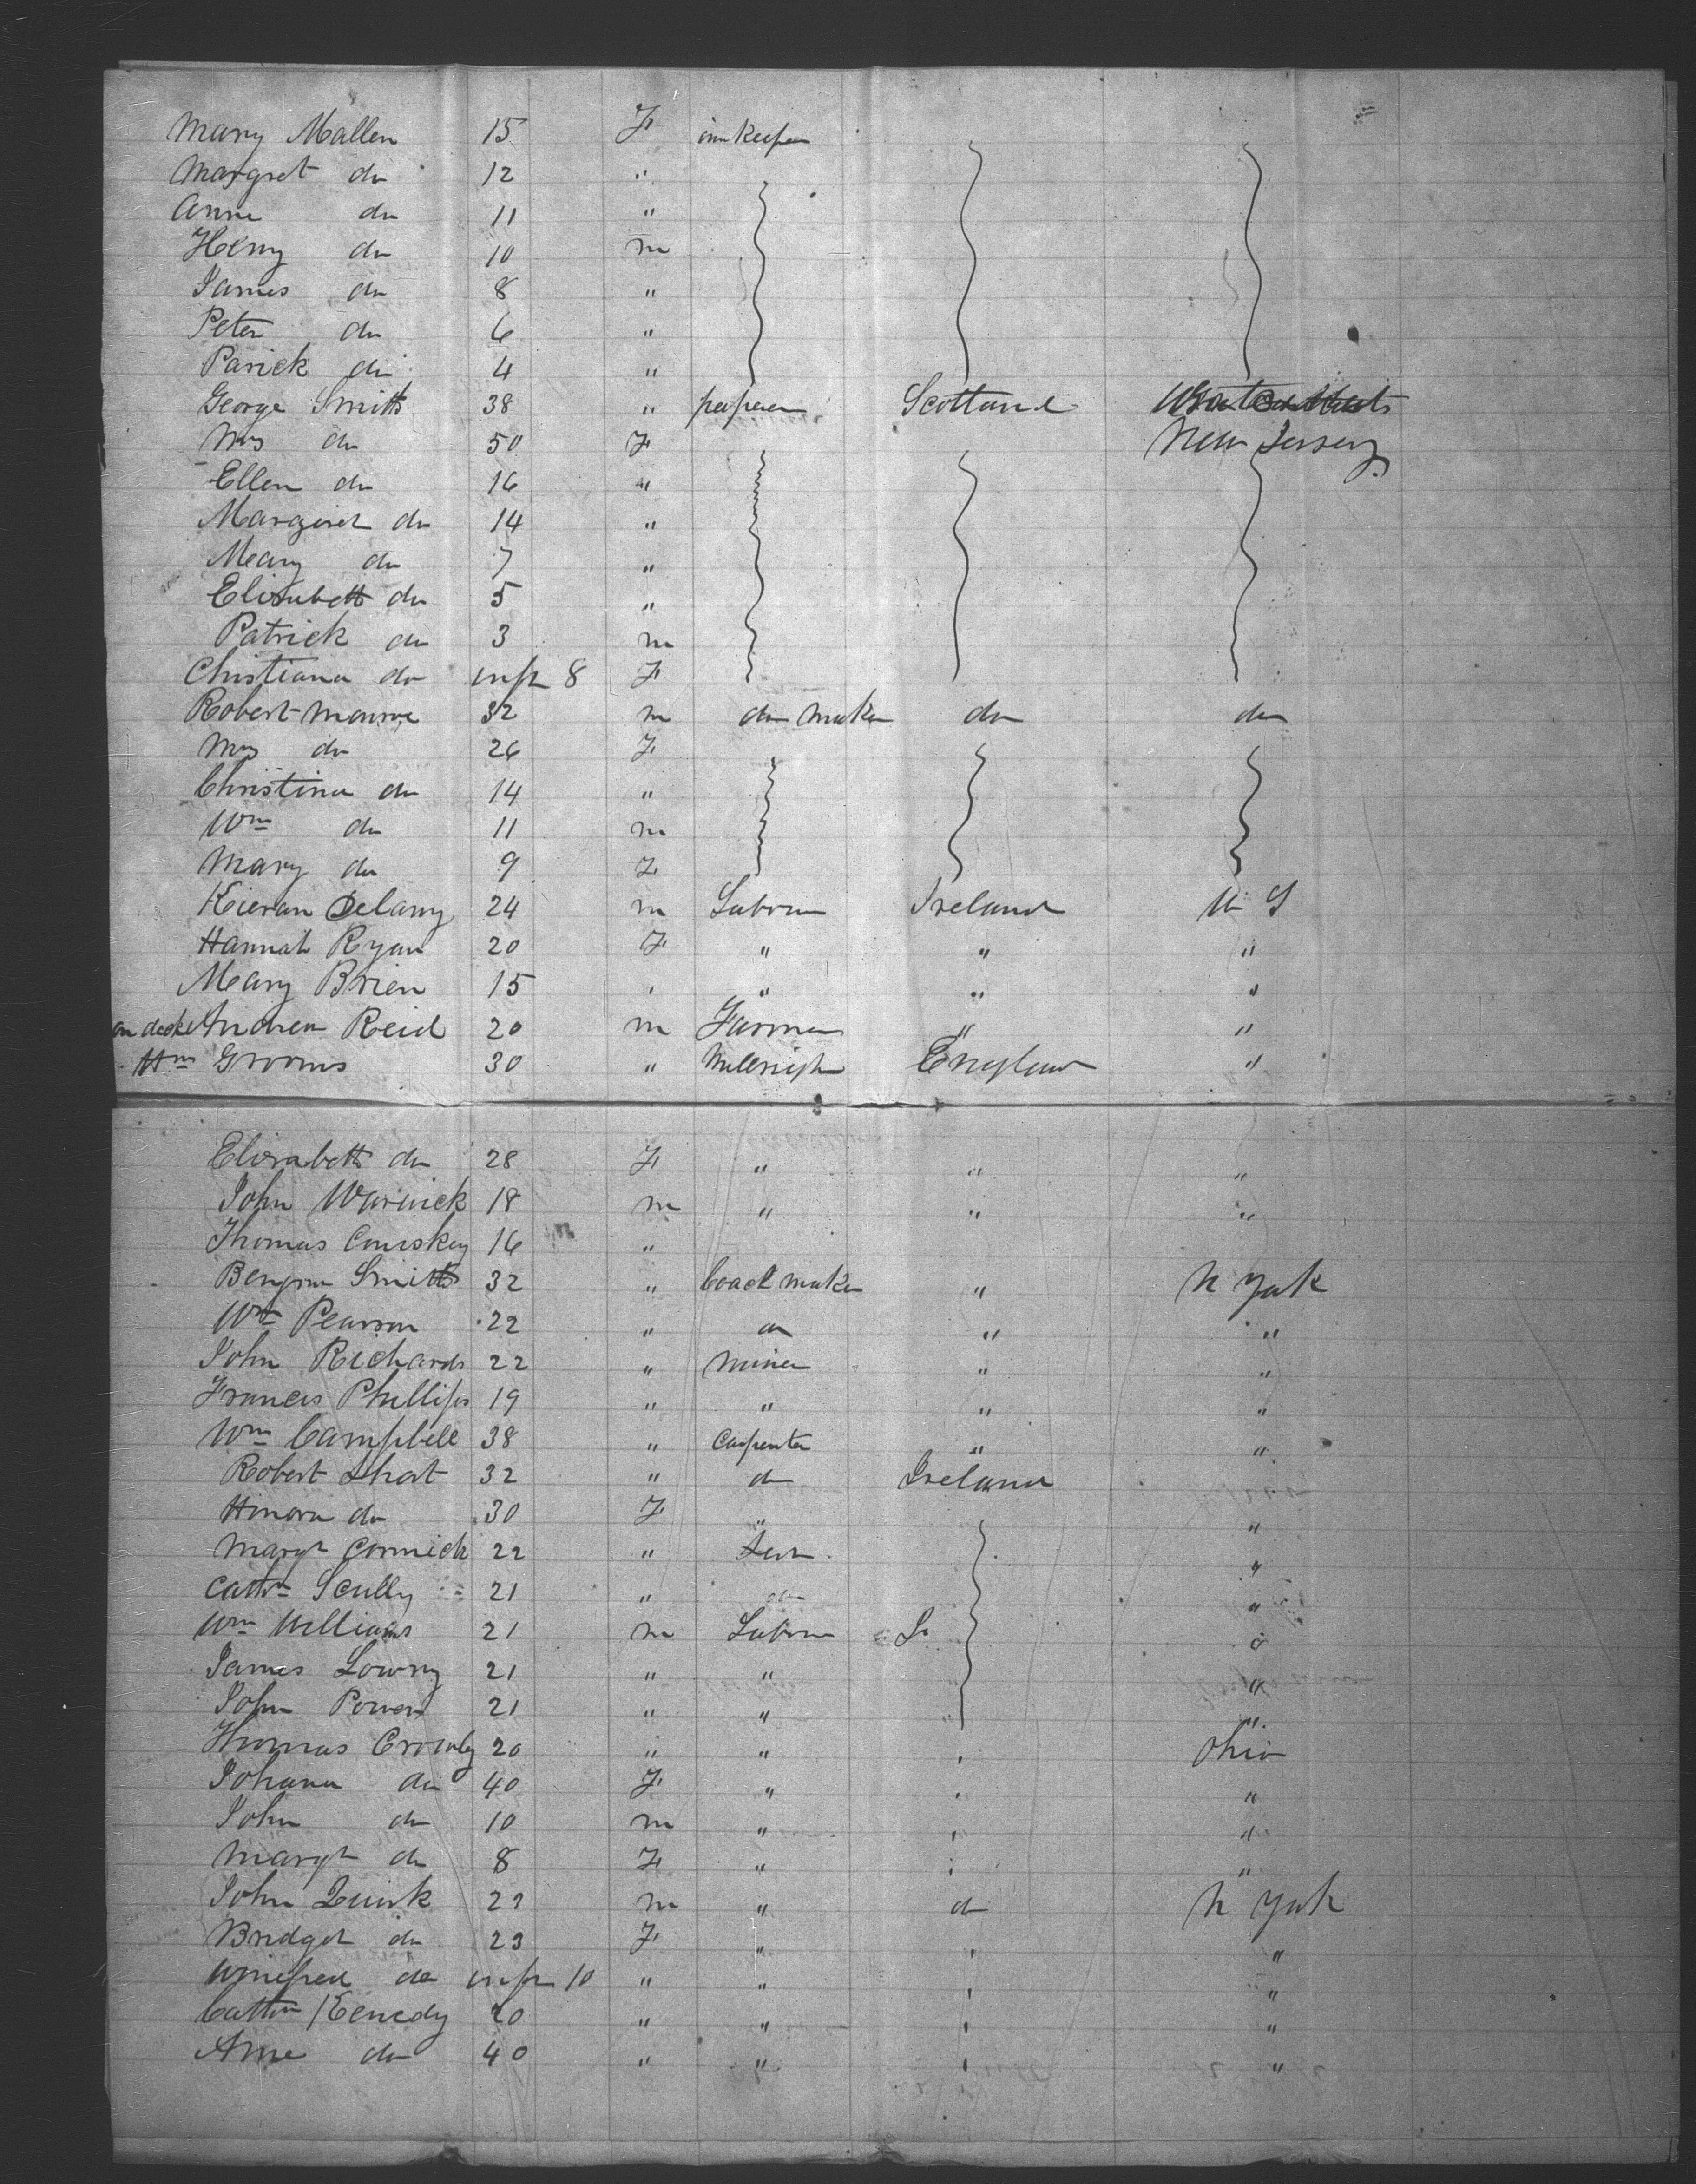 Mary Mallen 15 F innkeeper
Margret do 12 "
Anne do 11 "
Henry do 10 m
James do 8 "
Peter do 6 "
Parick do 4 "
George Smith 38 " Scotland
Mrs do 50 F New Jersey
Ellen do 16 "
Margeret do 14 "
Meary do 7 "
Elizabeth do 5 "
Patrick do 3 m
Christiana do inft 8 F
Robert Monroe 32 m do maker do do
Mrs do 26 F
Christina do 14 "
Wm do 11 m
Mary do 9 F
Kieran Delany 24 m Laborer Ireland U S
Hannah Ryan 20 F " " "
Meary Brien 15 " " "
on deck Andrew Reid 20 m Farmer " "
Wm Grooms 30 " Millright England "
Elizabeth do 28 F " " "
John Warwick 18 m " " "
Thomas 16 "
Benjmn Smith 32 " Coach maker " N York
Wm Pearson 22 " do " "
John Richards 22 " miner " "
Francis Phillips 19 " " " "
Wm Campbell 38 " Carpenter " "
Robert Short 32 " do Ireland
Honora do 30 F " "
Margt Cormick 22 " Sert "
Cathn Scully 21 " do "
Wm Williams 21 m Laborer "
James Lowry 21 " " "
John Power 21 " " "
Thomas Crowley 20 " " Ohio
Johana do 40 F " "
John do 10 m " "
Margt do 8 F " "
John Quirk 22 m " do N York
Bridget do 23 F " "
Winefred do inft 10 " " "
Cathn Kenedy 20 " " "
Anne do 40 " " "